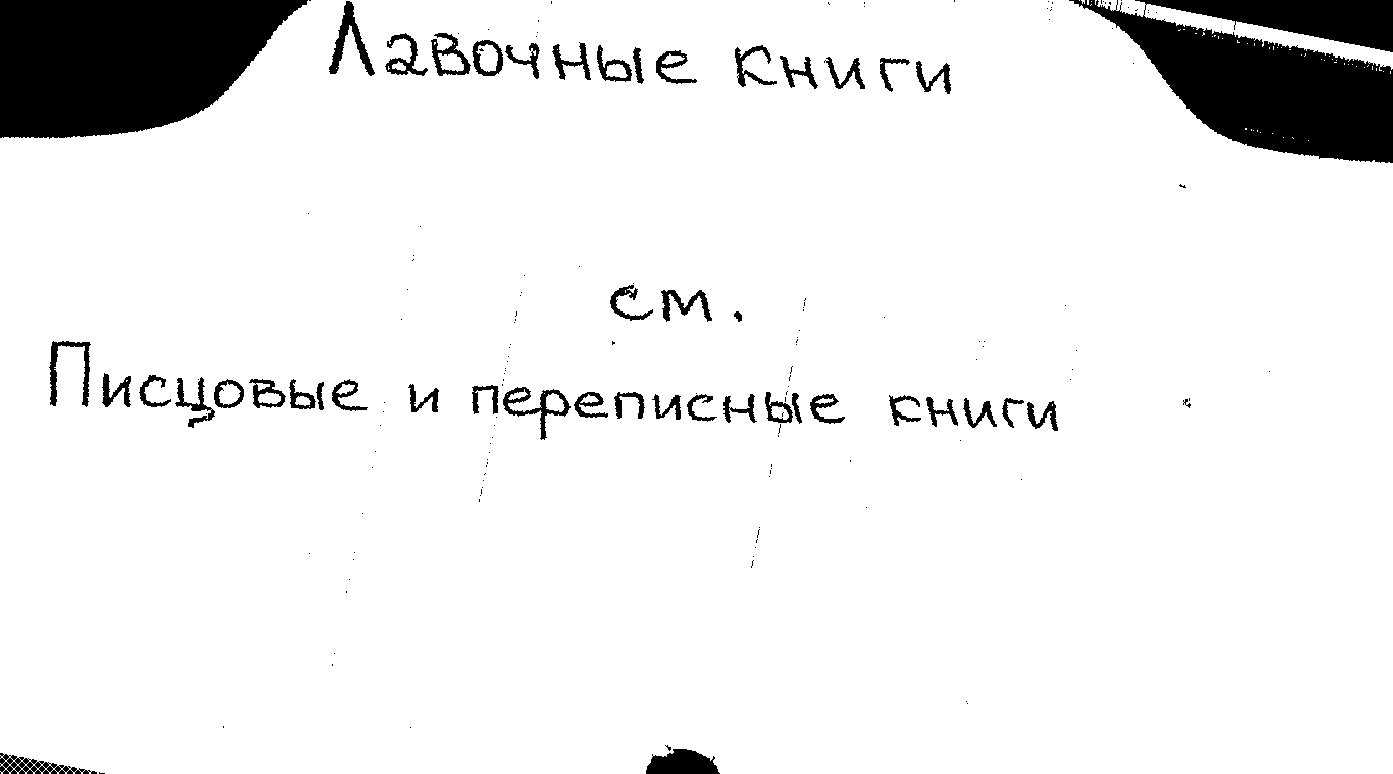 Лавочные книги
см.
Писцовые и переписные книги